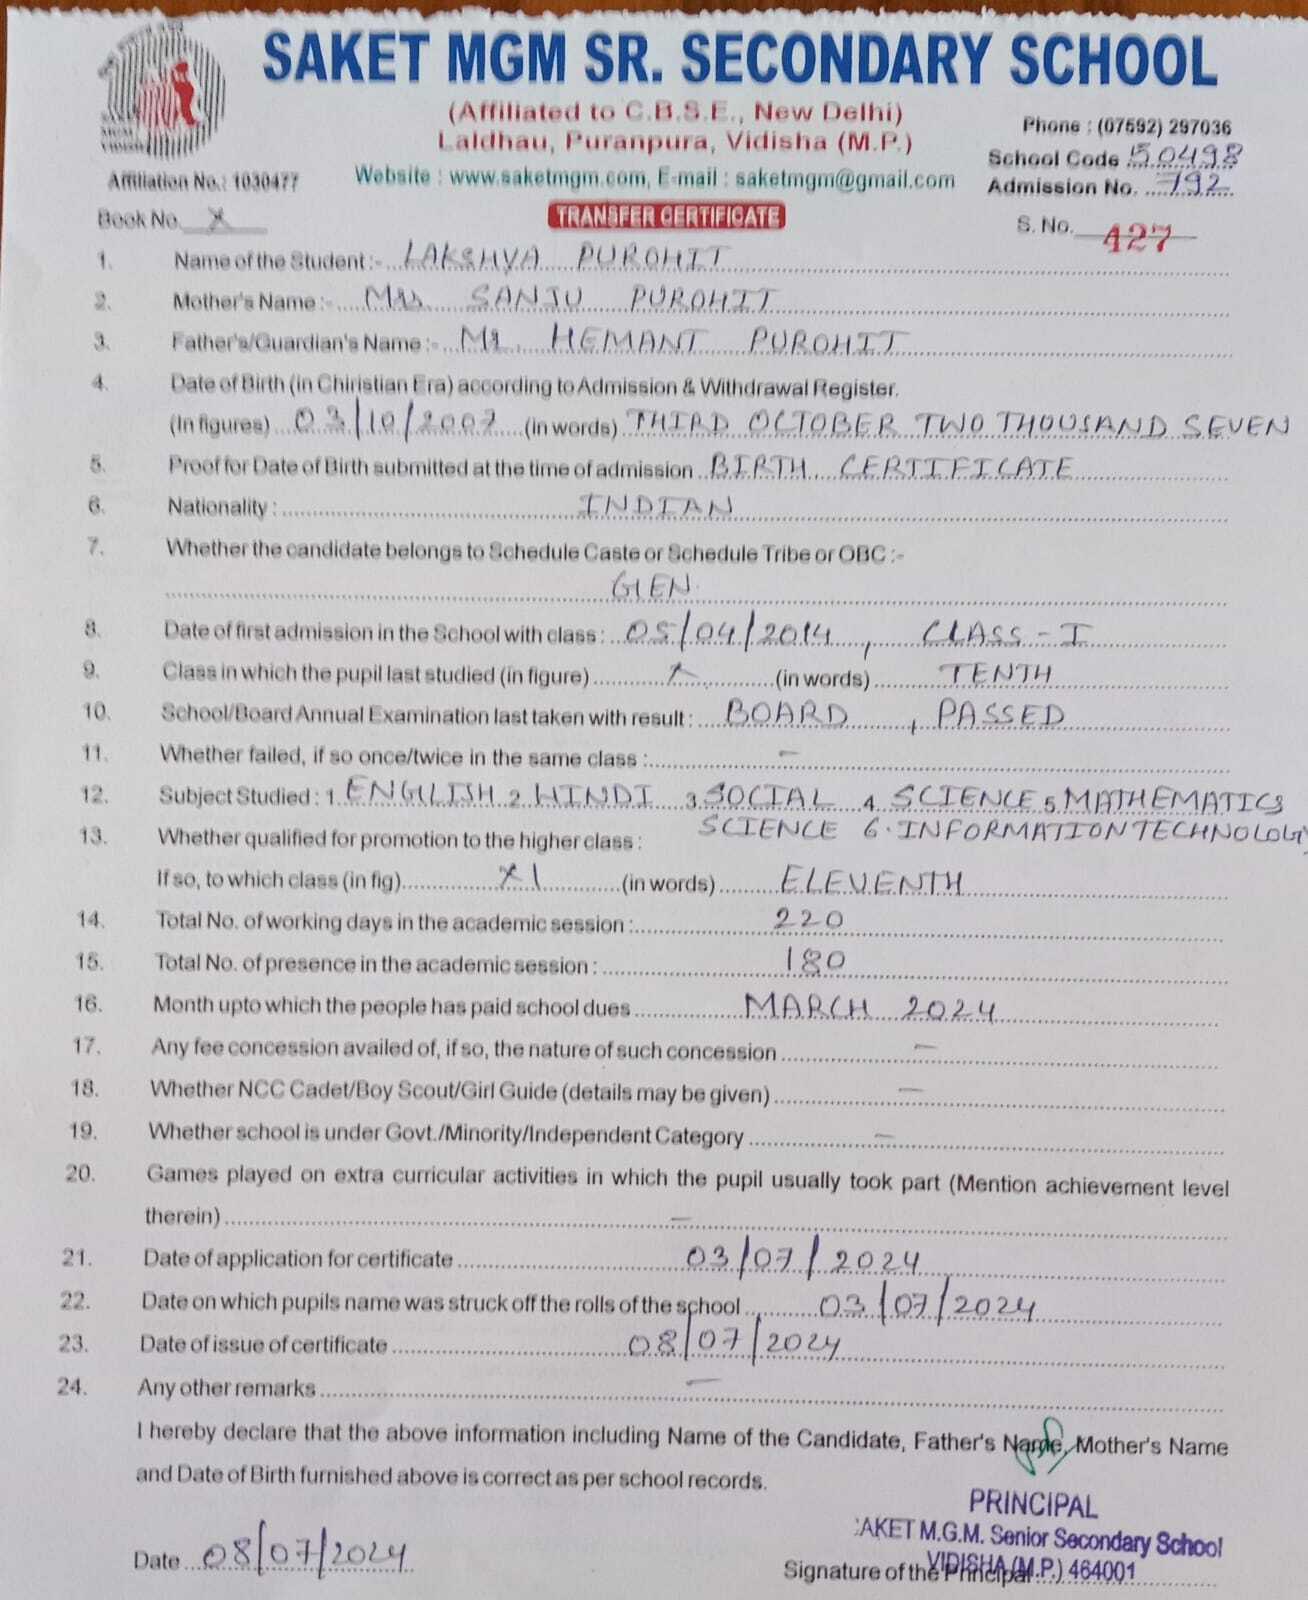 SAKET MGM SR. SECONDARY SCHOOL
(Affiliated to C.B.S.E., New Delhi)
Laldhau, Puranpura, Vidisha (M.P.)
Phone : (07592) 297036
Affiliation No.: 1030477
Website : www.saketmgm.com, E-mail : saketmgm@gmail.com
School Code 50498
Admission No. 792
Book No. X
TRANSFER CERTIFICATE
S. No. 427
1. Name of the Student :- LAKSHYA PUROHIT
2. Mother's Name :- Mrs. SANJU PUROHIT
3. Father's/Guardian's Name :- Mr. HEMANT PUROHIT
4. Date of Birth (in Chiristian Era) according to Admission & Withdrawal Register.
(In figures) 03/10/2007 (in words) THIRD OCTOBER TWO THOUSAND SEVEN
5. Proof for Date of Birth submitted at the time of admission BIRTH CERTIFICATE
6. Nationality : INDIAN
7. Whether the candidate belongs to Schedule Caste or Schedule Tribe or OBC :-
GEN
8. Date of first admission in the School with class : 05/04/2014, CLASS - I
9. Class in which the pupil last studied (in figure) X (in words) TENTH
10. School/Board Annual Examination last taken with result : BOARD, PASSED
11. Whether failed, if so once/twice in the same class : -
12. Subject Studied : 1. ENGLISH 2. HINDI 3. SOCIAL 4. SCIENCE 5. MATHEMATICS
SCIENCE 6. INFORMATION TECHNOLOGY
13. Whether qualified for promotion to the higher class :
If so, to which class (in fig) XI (in words) ELEVENTH
14. Total No. of working days in the academic session : 220
15. Total No. of presence in the academic session : 180
16. Month upto which the people has paid school dues MARCH 2024
17. Any fee concession availed of, if so, the nature of such concession -
18. Whether NCC Cadet/Boy Scout/Girl Guide (details may be given) -
19. Whether school is under Govt./Minority/Independent Category -
20. Games played on extra curricular activities in which the pupil usually took part (Mention achievement level
therein) -
21. Date of application for certificate 03/07/2024
22. Date on which pupils name was struck off the rolls of the school 03/07/2024
23. Date of issue of certificate 08/07/2024
24. Any other remarks -
I hereby declare that the above information including Name of the Candidate, Father's Name, Mother's Name
and Date of Birth furnished above is correct as per school records.
PRINCIPAL
SAKET M.G.M. Senior Secondary School
VIDISHA (M.P.) 464001
Date 08/07/2024
Signature of the Principal